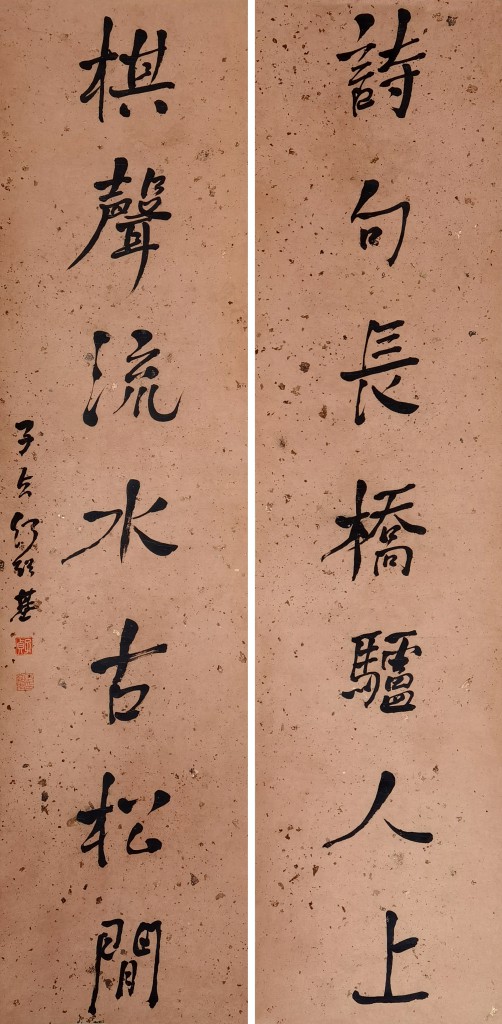 詩句長橋驢人上
棋聲流水古松閒
子貞何紹基